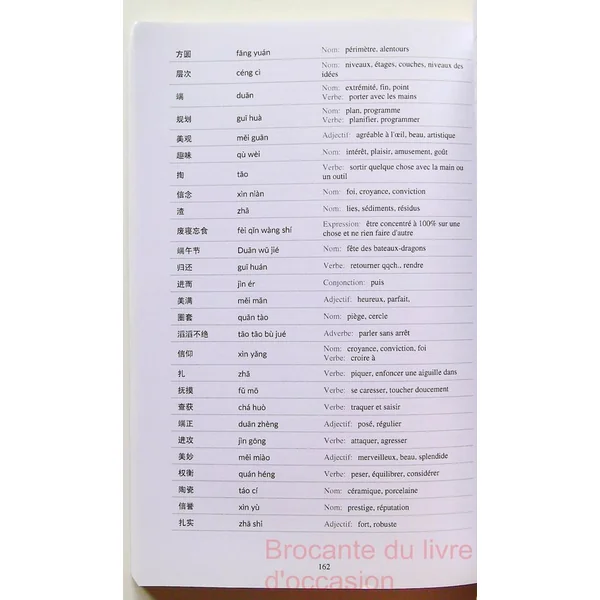 方圆 fāng yuán Nom: périmètre, alentours
层次 céng cì Nom: niveaux, étages, couches, niveaux des
idées
端 duān Nom: extrémité, fin, point
Verbe: porter avec les mains
规划 guī huà Nom: plan, programme
Verbe: planifier, programmer
美观 měi guān Adjectif: agréable à l'œil, beau, artistique
趣味 qù wèi Nom: intérêt, plaisir, amusement, goût
掏 tāo Verbe: sortir quelque chose avec la main ou
un outil
信念 xìn niàn Nom: foi, croyance, conviction
渣 zhā Nom: lies, sédiments, résidus
废寝忘食 fèi qǐn wàng shí Expression: être concentré à 100% sur une
chose et ne rien faire d'autre
端午节 Duān wǔ jié Nom: fête des bateaux-dragons
归还 guī huán Verbe: retourner qqch., rendre
进而 jìn ér Conjonction: puis
美满 měi mǎn Adjectif: heureux, parfait,
圈套 quān tào Nom: piège, cercle
滔滔不绝 tāo tāo bù jué Adverbe: parler sans arrêt
信仰 xìn yǎng Nom: croyance, conviction, foi
Verbe: croire à
扎 zhā Verbe: piquer, enfoncer une aiguille dans
抚摸 fǔ mō Verbe: se caresser, toucher doucement
查获 chá huò Verbe: traquer et saisir
端正 duān zhèng Adjectif: posé, régulier
进攻 jìn gōng Verbe: attaquer, agresser
美妙 měi miào Adjectif: merveilleux, beau, splendide
权衡 quán héng Verbe: peser, équilibrer, considérer
陶瓷 táo cí Nom: céramique, porcelaine
信誉 xìn yù Nom: prestige, réputation
扎实 zhā shi Adjectif: fort, robuste
Brocante du livre
162
d'occasion